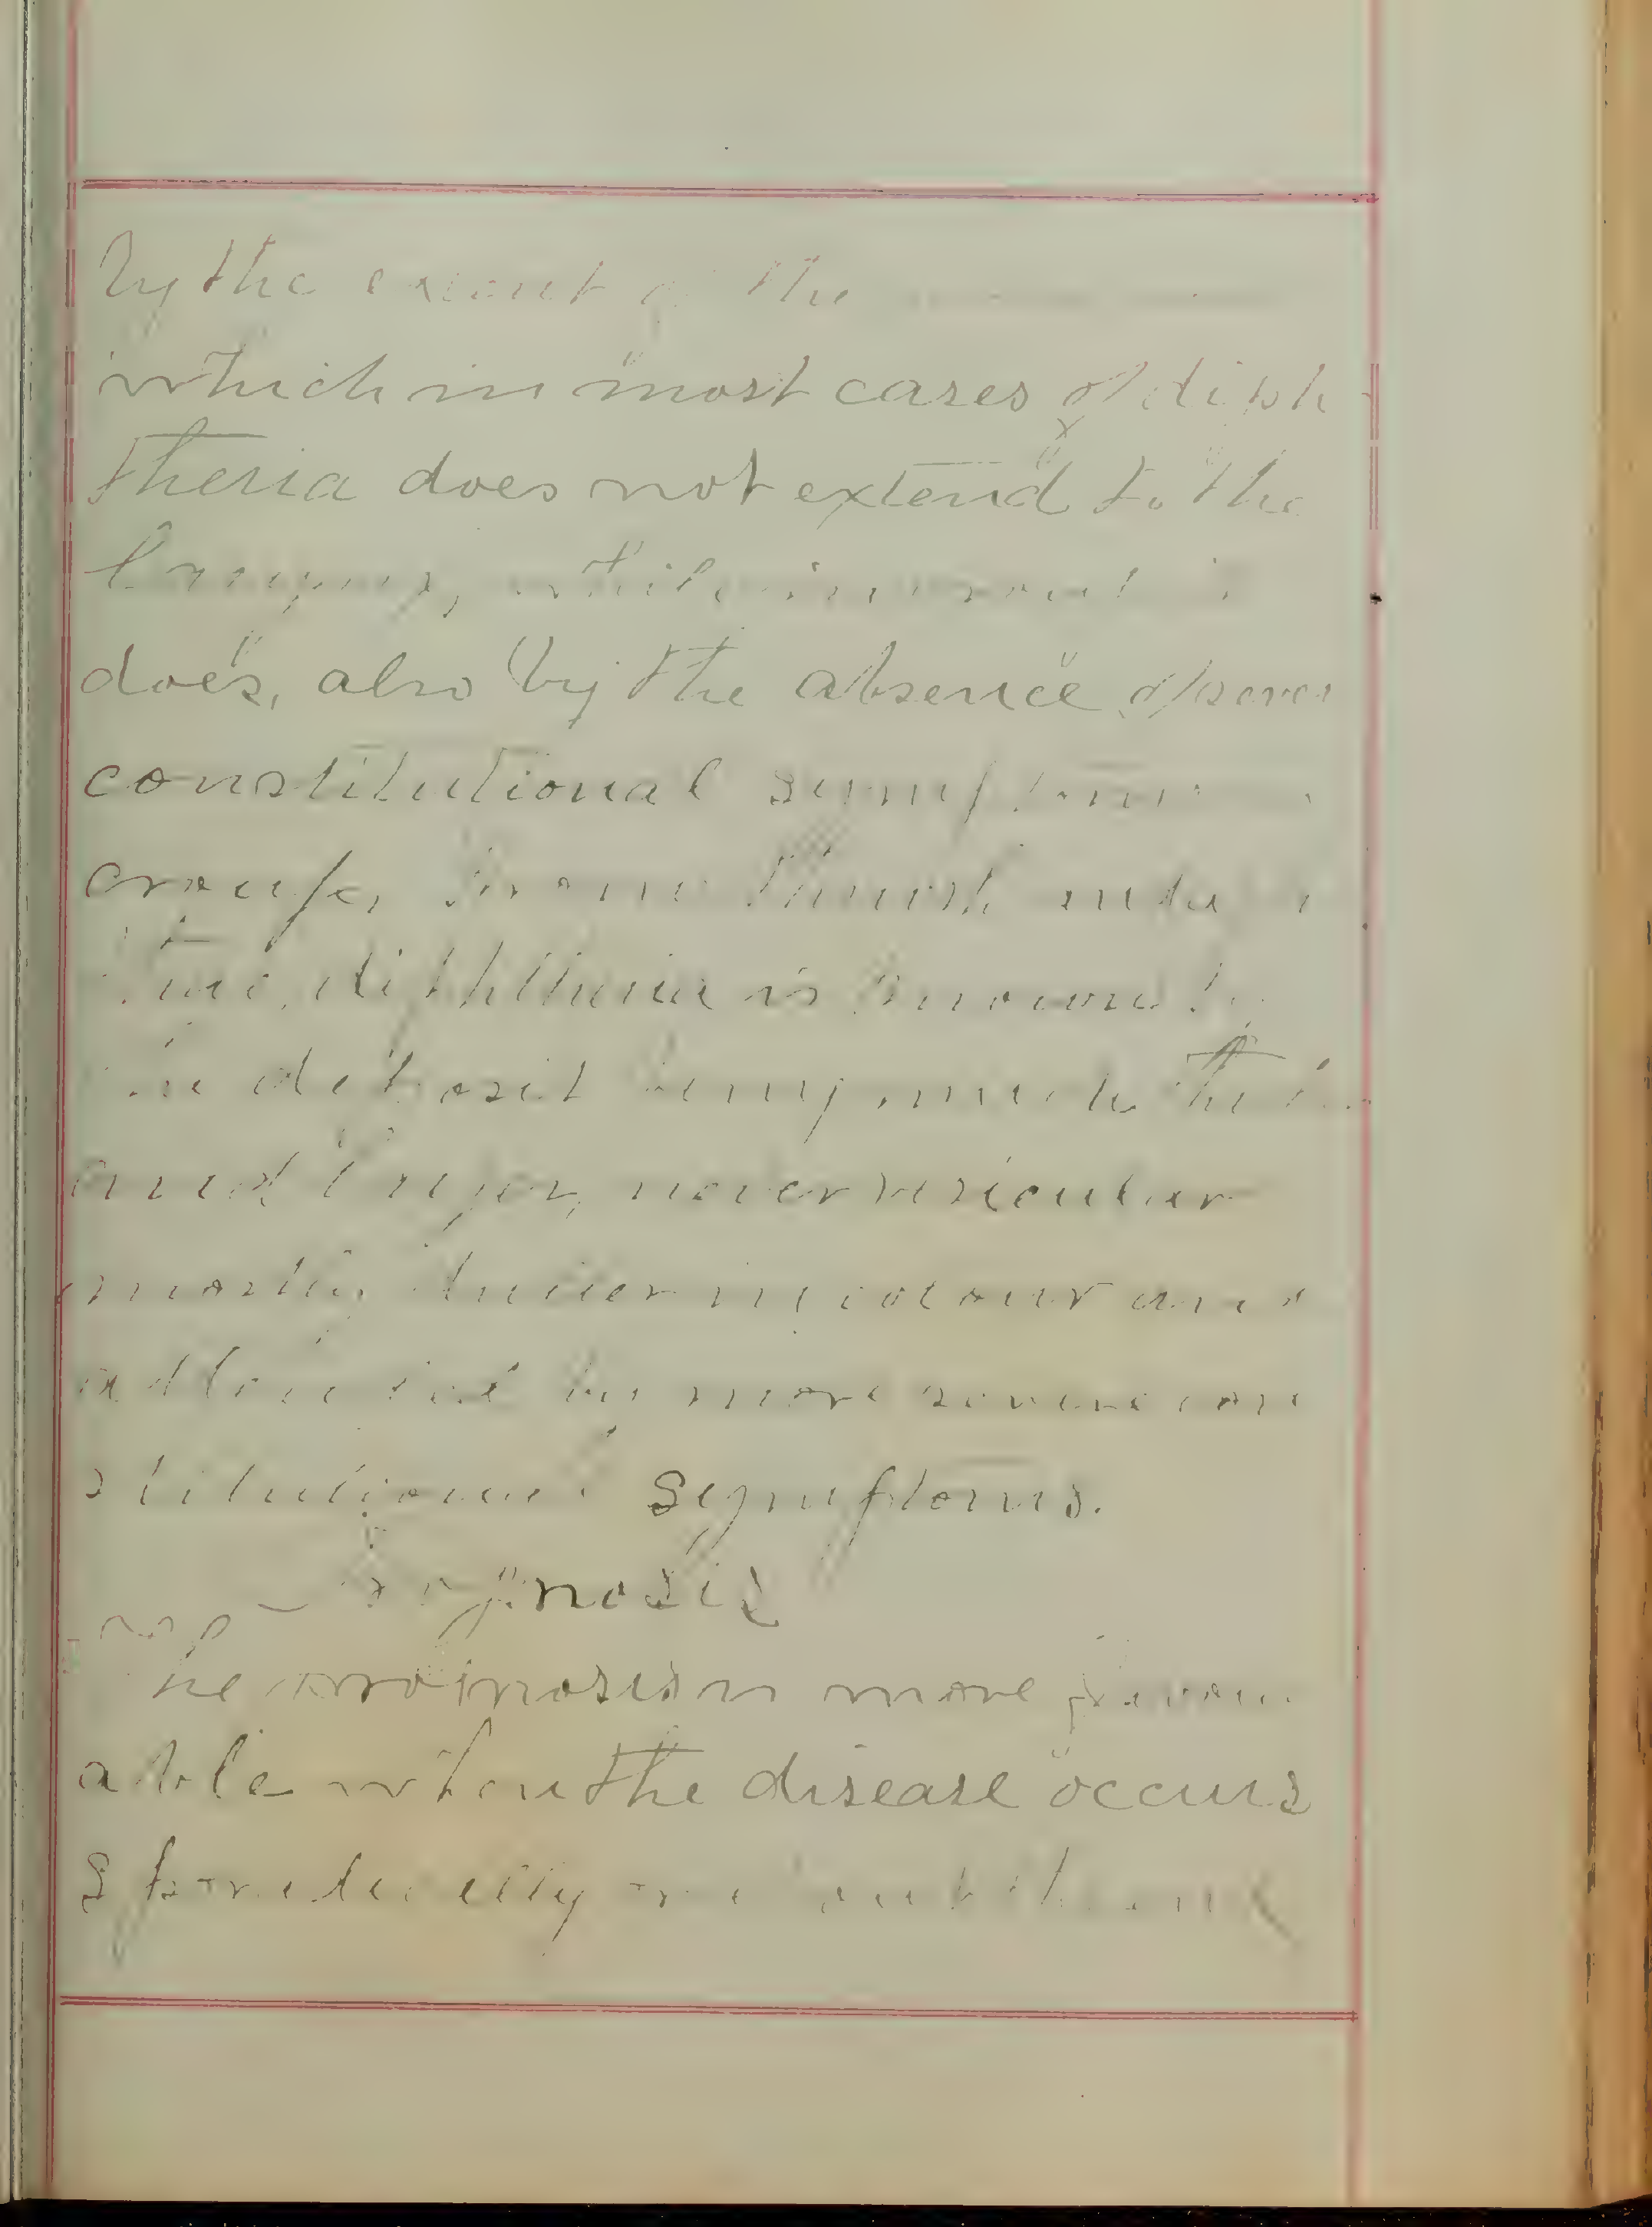 by the extent of the
which in most cases of diph-
theria does not extend to the
larynx, while in croup it
does, also by the absence of sever
constitutional symptoms in
croup, from thrush
diphtheria is known by
the deposit being much
and larger, never vesicular
mostly in colour and
by more severe con
stitutional symptoms.
Prognosis
The prognosis is more favour
able when the disease occurs
sporadically